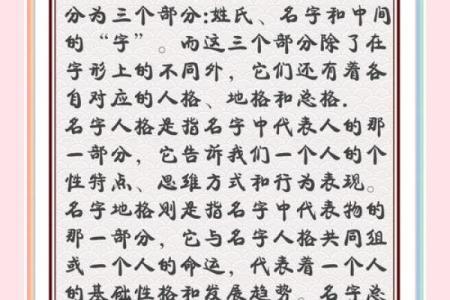 分为三个部分:姓氏、名字和中间
的“字”。而这三个部分除了在
字形上的不同外，它们还有着各
自对应的人格、地格和总格.
名字人格是指名字中代表人的那
一部分，它告诉我们一个人的个
性特点、思维方式和行为表现。
名字地格则是指名字中代表物的
那一部分，它与名字人格共同组
成一个人的命运，代表着一个人
的基础性格和发展趋势。名字总